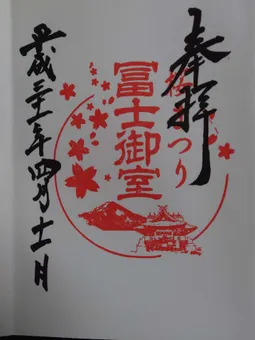 奉拝
桜まつり
冨士御室
平成三十一年四月十一日